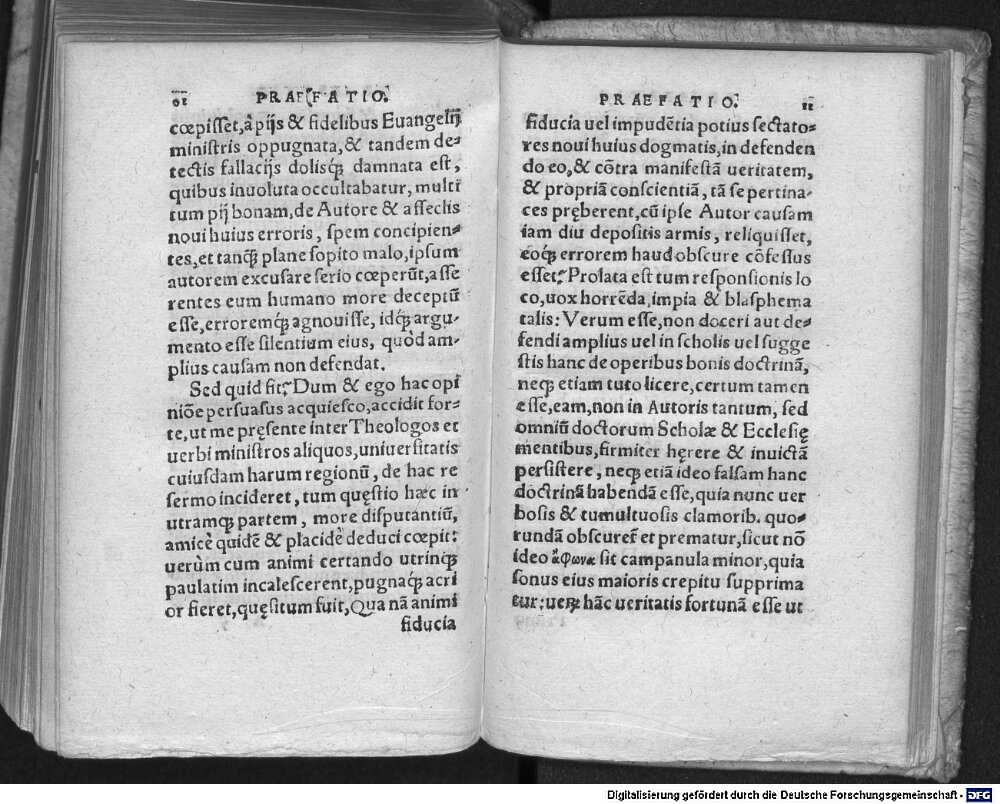 10 PRAEFATIO.
cœpisset, à pijs & fidelibus Euangelij
ministris oppugnata, & tandem de=
tectis fallacijs dolisq́; damnata est,
quibus inuoluta occultabatur, multi
tum pij bonam, de Autore & asseclis
noui huius erroris, spem concipien=
tes, et tanq̃ plane sopito malo, ipsum
autorem excusare serio cœperũt, asse
rentes eum humano more deceptũ
esse, erroremq́; agnouisse, idq́; argu-
mento esse silentium eius, quòd am-
plius causam non defendat.
Sed quid fit? Dum & ego hac opi
niõe persuasus acquiesco, accidit for=
te, ut me pręsente inter Theologos et
uerbi ministros aliquos, uniuersitatis
cuiusdam harum regionũ, de hac re
sermo incideret, tum quęstio hæc in
utramq; partem, more disputantiũ,
amicè quidẽ & placidè deduci cœpit:
uerùm cum animi certando utrinq;
paulatim incalescerent, pugnaq́; acri
or fieret, quęsitum fuit, Qua nã animi
fiducia
PRAEFATIO. 11
fiducia uel impudẽtia potius sectato=
res noui huius dogmatis, in defenden
do eo, & cõtra manifestã ueritatem,
& propriã conscientiã, tã se pertina-
ces pręberent, cũ ipse Autor causam
iam diu depositis armis, reliquisset,
eoq́; errorem haud obscure cõfessus
esset? Prolata est tum responsionis lo
co, uox horrẽda, impia & blasphema
talis: Verum esse, non doceri aut de=
fendi amplius uel in scholis uel sugge
stis hanc de operibus bonis doctrinã,
neq; etiam tuto licere, certum tamen
esse, eam, non in Autoris tantum, sed
omniũ doctorum Scholæ & Ecclesię
mentibus, firmiter hęrere & inuictã
persistere, neq; etiã ideo falsam hanc
doctrinã habendã esse, quia nunc uer
bosis & tumultuosis clamorib. quo=
rundã obscuret̃ et prematur, sicut nõ
ideo ἄφωνα sit campanula minor, quia
sonus eius maioris crepitu supprima
tur: uerę hãc ueritatis fortunã esse ut
Digitalisierung gefördert durch die Deutsche Forschungsgemeinschaft - DFG